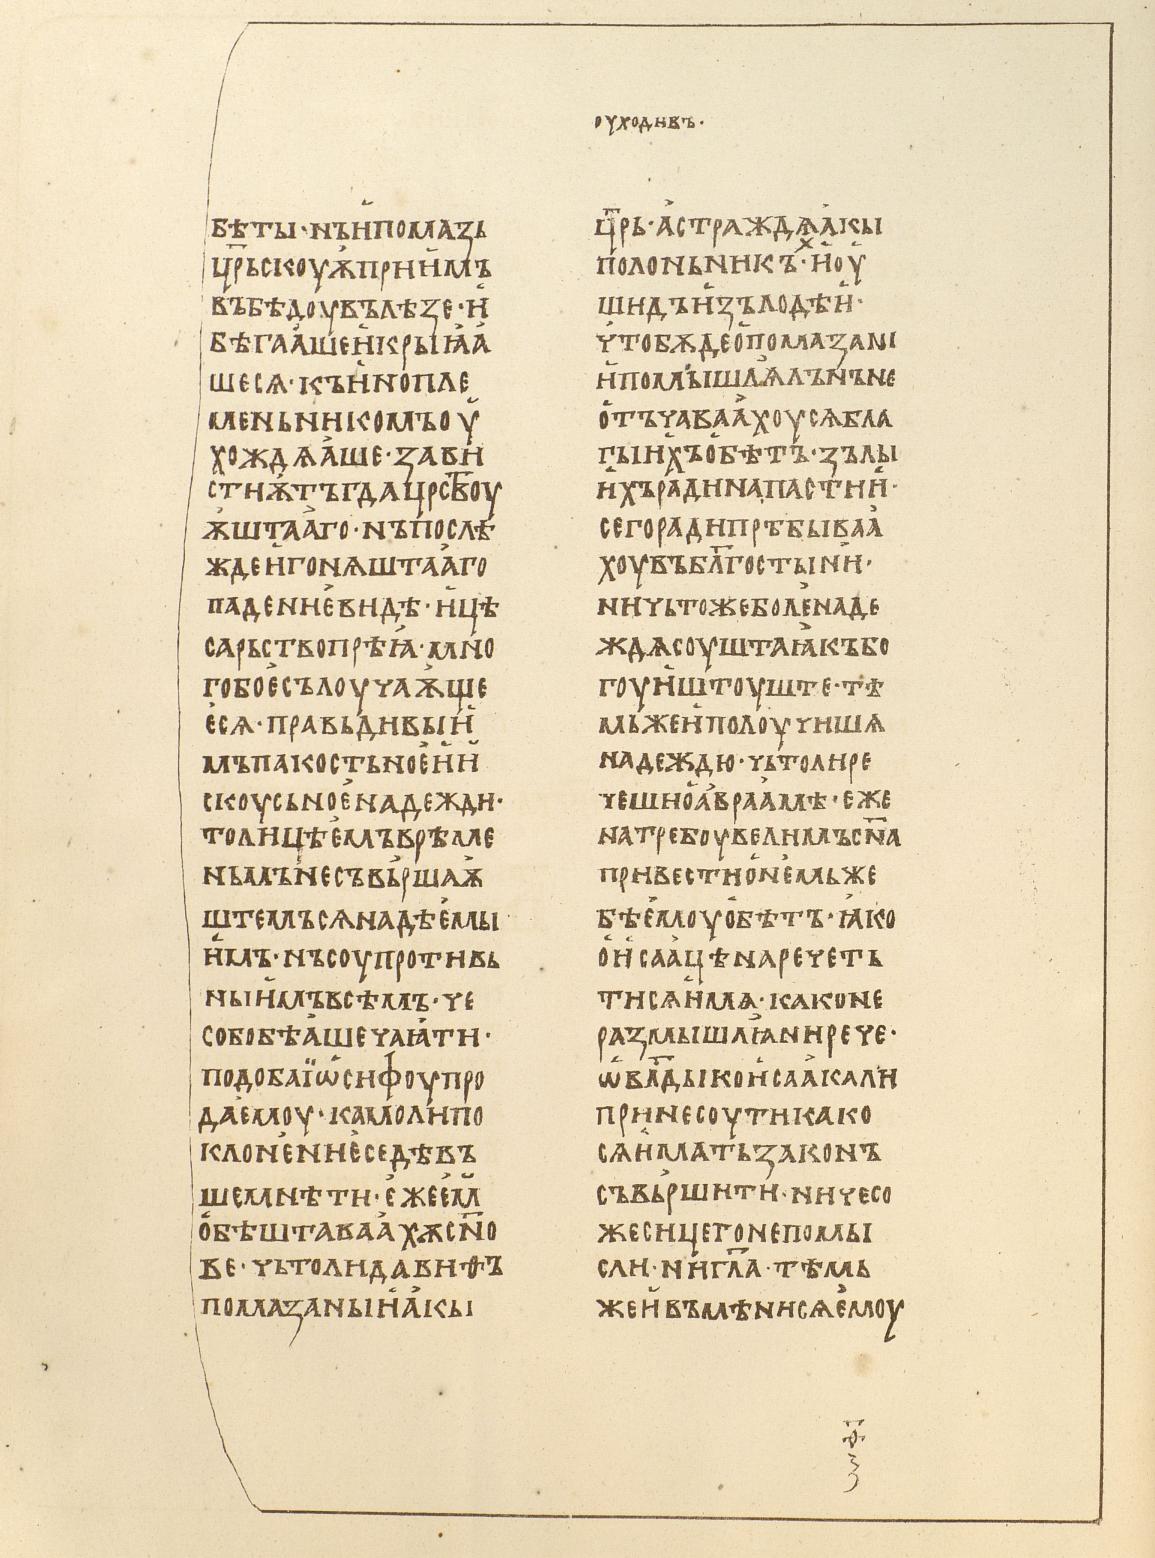 оуходивъ·
бѣты·нъи҆помазь
цр҃ьскоуѭприи҆мъ
въбѣдоувълѣзе·и҆
бѣгаа҆шеи҆крыꙗа҆
шесѧ·къи҆нопле
меньникомъоу҆
хождѧа҆ше·зави
стиѭтъгдацрс҃твоу
ѭштаа҆го·нъпослѣ
ждеи҆гонѧштаа҆го
падениевидѣ·и҆цѣ
сарьствопрѣꙗ·мно
гобоесълоучаѭще
есѧ·правьдивыи҆
мъпакостьноеи҆и҆
скоусьноенадежди·
толицѣемъврѣме
ньмънесъвьршаѭ
штемъсѧнадѣемы
и҆мъ·нъсоупротивь
ныи҆мъвсѣмъ·че
собобѣа҆шечаꙗти·
подобаїѡ҆сифоупро
даемоу·камолипо
клонениеседѣвъ
шемнѣти·ежеем
о҆бѣштаваа҆хѫсн҃о
ве·чьтолидавиѳъ
помазаныи҆а҆кы
цр҃ь·а҆страждѧа҆кы
полоньникъ·и҆оу҆х
шидъи҆зълодѣи҆·
чтобѫдео҆помазані
и҆помꙑшлѧлънъне
о҆тъчаваа҆хоусѧбла
гыи҆хъо҆бѣтъ·зълы
и҆хърадинапастии҆·
сегорадипрѣбываа҆
хоувъбл҃гостыни·
ничьтожеболенаде
ждѧсоуштаꙗкъбо
гоуи҆штоуште·тѣ
мьжеи҆полоучишѧ
надеждю·чьтолире
чешио҆а҆враа҆мѣ·еже
натребоувелимъсн҃а
привестио҆немьже
бѣемоуо҆бѣтъ·ꙗко
о҆и҆саа҆цѣнаречеть
тисѧи҆мѧ·каконе
размышлꙗниречe·
ѡ҆вл҃дыкои҆саа҆кали
принесоутикако
сѧи҆матьзаконъ
съвьршити·ничесо
жесицегонепомы
сли·ниг҃ла·тѣмь
жеи҆въмѣнисѧемоу
ѳ҃
з